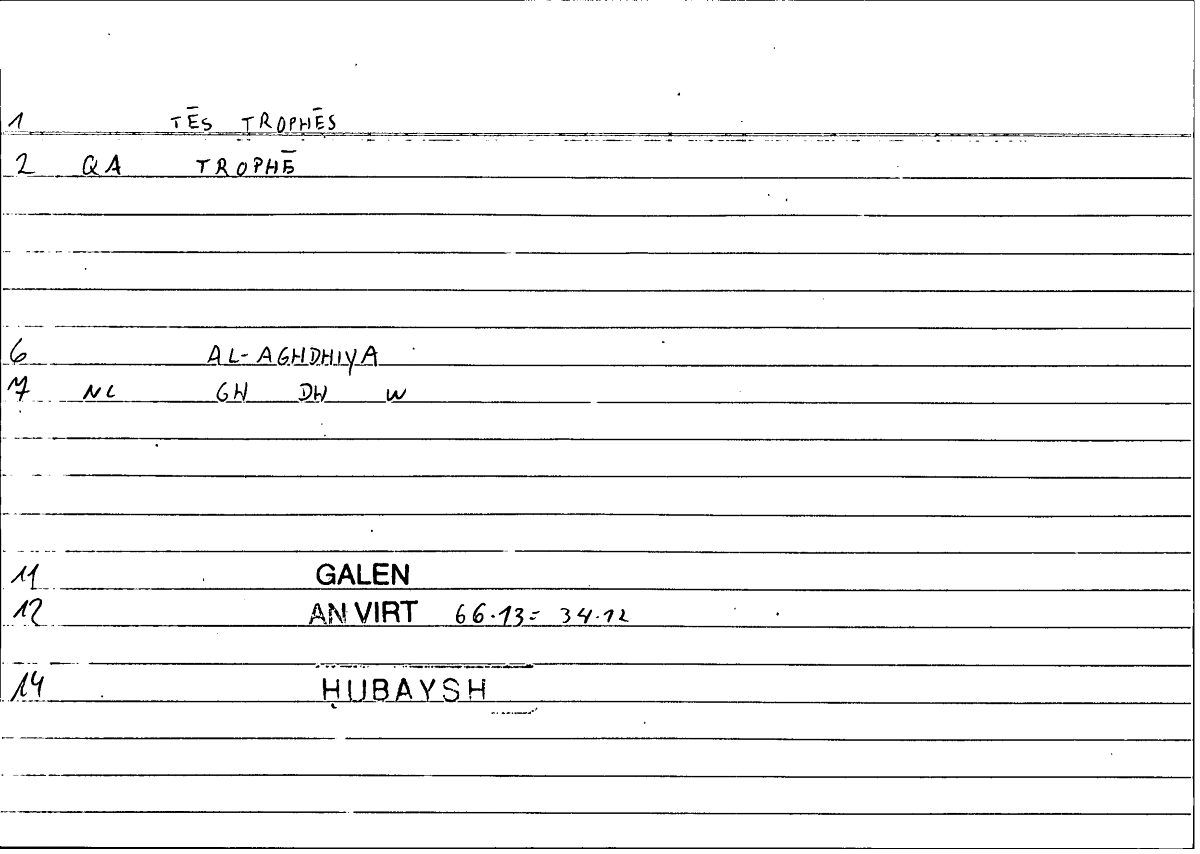 1 TĒS TROPHĒS
2 QA TROPHĒ
6 AL-AGHDHIYA
7 NL GH DH W
11 GALEN
12 AN VIRT 66.13= 34.12
14 ḤUBAYSH